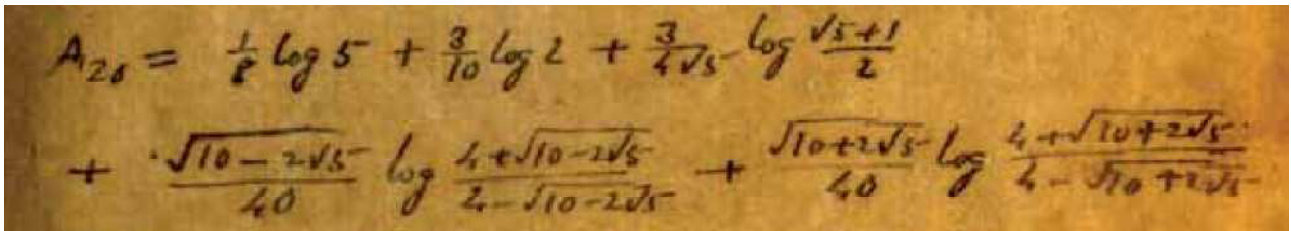 A₂₀ = 1/8 log 5 + 3/10 log 2 + 3/(4√5) log (√5+1)/2
+ √(10-2√5)/40 log (4+√(10-2√5))/(4-√(10-2√5)) + √(10+2√5)/40 log (4+√(10+2√5))/(4-√(10+2√5))